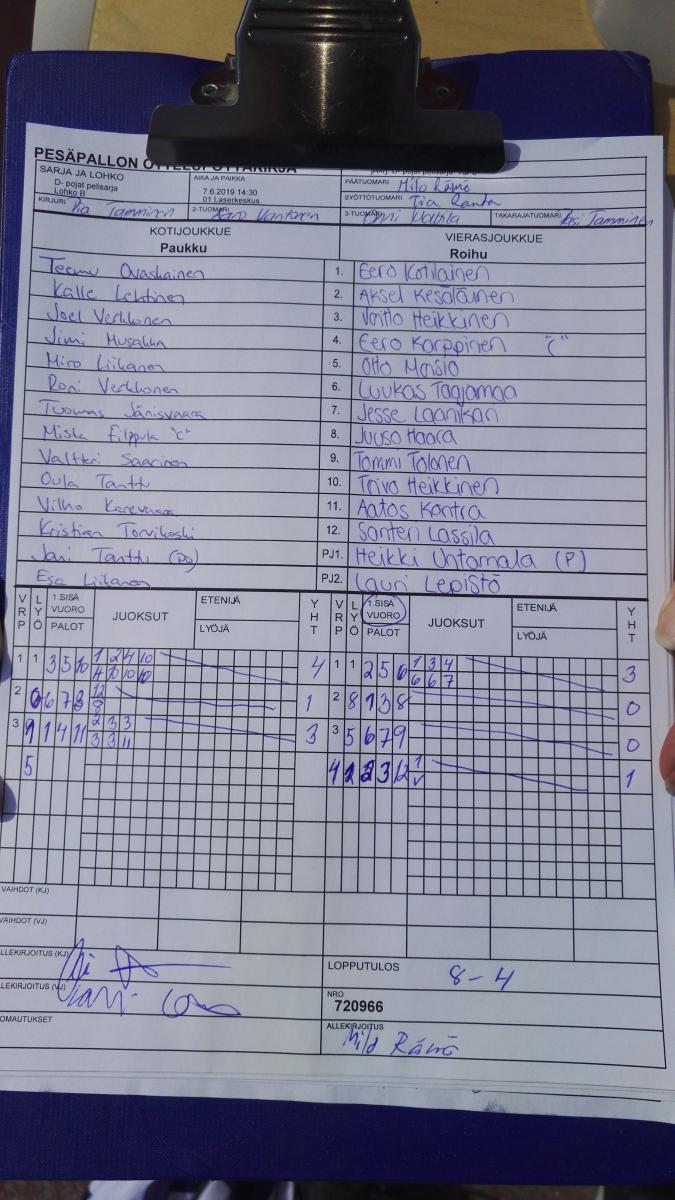 PESÄPALLON OTTELUPÖYTÄKIRJA
SARJA JA LOHKO
D- pojat pelisarja
Lohko B
AIKA JA PAIKKA
7.6.2019 14:30
01 Laserkeskus
PÄÄTUOMARI Milo Rämö
SYÖTTÖTUOMARI Pia Ranta
KIRJURI Pia Tamminen
2-TUOMARI
3-TUOMARI
TAKARAJATUOMARI Pasi Tamminen
KOTIJOUKKUE
Paukku
VIERASJOUKKUE
Roihu
Teemu Ovaskainen 1. Eero Kotilainen
Kalle Lehtinen 2. Aksel Kesäläinen
Joel Verkkonen 3. Heikkinen
Jimi Musakka 4. Eero Karppinen "C"
Miro Liikanen 5. Otto Masio
Roni Verkkonen 6. Luukas Taajamaa
Tuomas Jänisvaara 7. Jesse Laanikari
Miska Filppula "C" 8. Juuso Haara
Valtteri Saarinen 9. Tommi Tolonen
Oula Tanttu 10. Toivo Heikkinen
Vilho 11. Aatos Kontra
Kristian Torvikoski 12. Santeri Lassila
Jani Tanttu PJ1. Heikki Untamala (P)
Esa Liikanen PJ2. Lauri Lepistö
VRP LYÖ 1.SISÄ VUORO PALOT JUOKSUT ETENIJÄ LYÖJÄ YHT VRP LYÖ 1.SISÄ VUORO PALOT JUOKSUT ETENIJÄ LYÖJÄ YHT
1 1 3 5 10 1 2 4 10 4 1 1 2 5 6 1 3 4 3
4 10 10 10 6 6 7
2 6 7 8 12 1 2 8 1 3 8 0
8
3 9 1 4 11 2 3 3 3 3 5 6 7 9 0
3 3 11
5 4 2 3 12 1 1
VAIHDOT (KJ)
VAIHDOT (VJ)
ALLEKIRJOITUS (KJ)
ALLEKIRJOITUS (VJ)
HUOMAUTUKSET
LOPPUTULOS 8-4
NRO
720966
ALLEKIRJOITUS
Milo Rämö